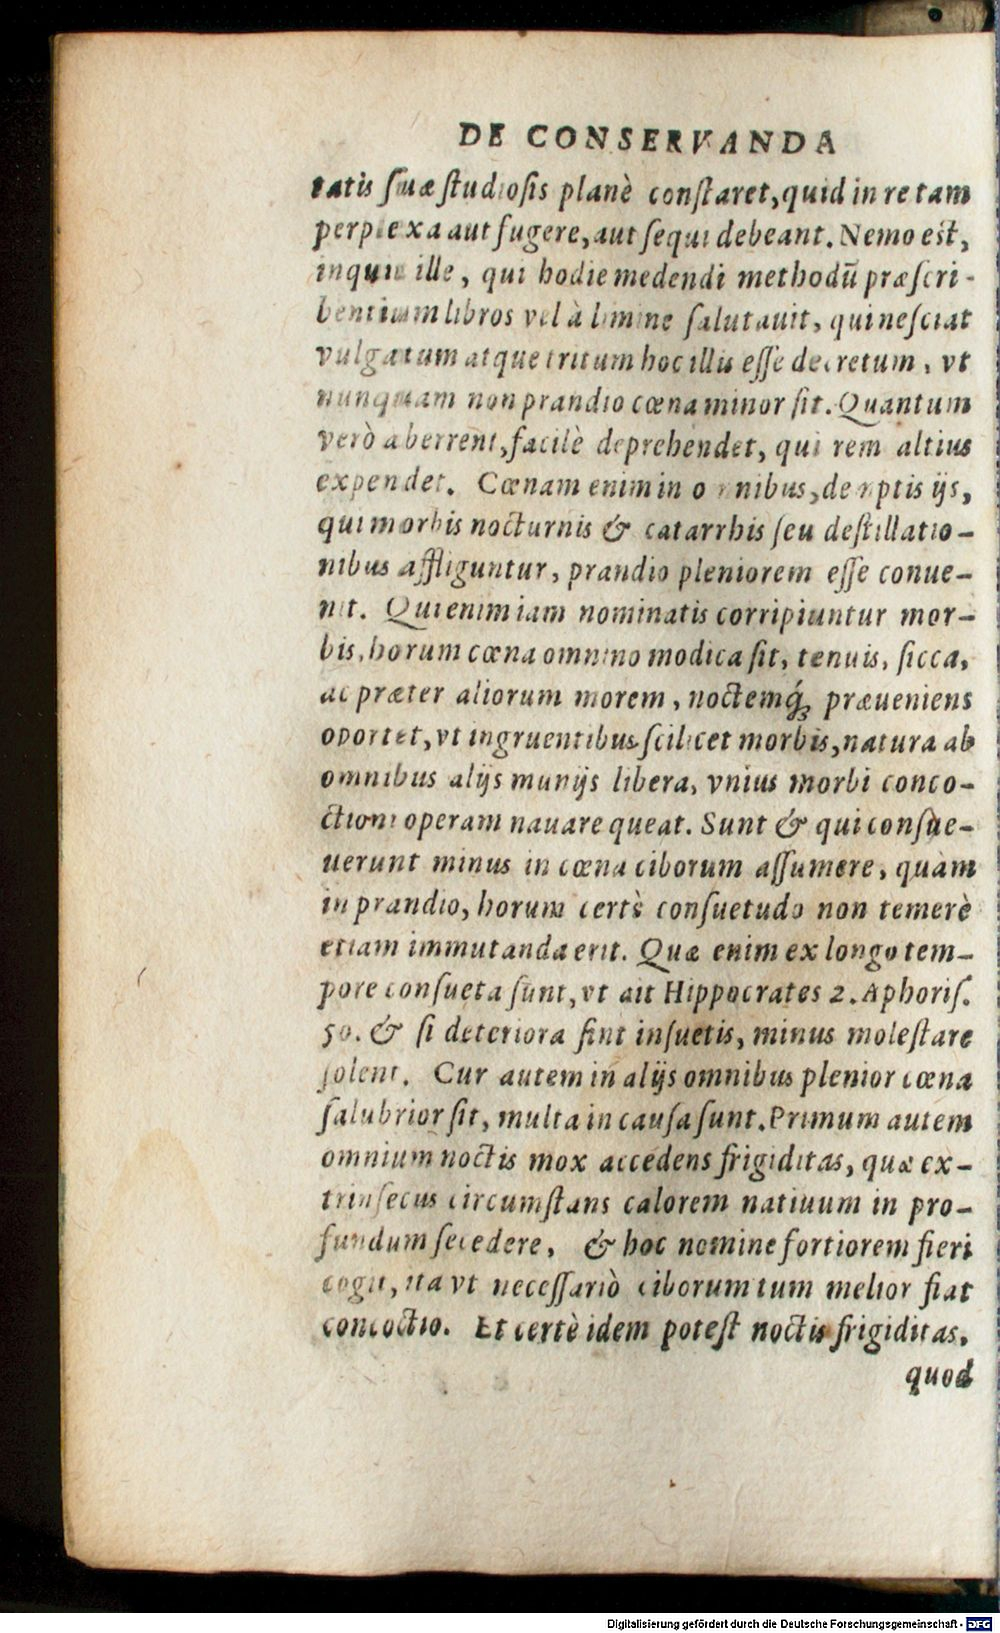 DE CONSERVANDA
tatis suæ studiosis planè constaret, quid in re tam
perplexa aut fugere, aut sequi debeant. Nemo est,
inquit ille, qui hodie medendi methodū præscri-
bentium libros vel à limine salutauit, qui nesciat
vulgatum atque tritum hoc illis esse decretum, vt
nunquam non prandio cœna minor sit. Quantum
verò aberrent, facilè deprehendet, qui rem altius
expendet. Cœnam enim in omnibus, demptis ijs,
qui morbis nocturnis & catarrhis seu destillatio-
nibus affliguntur, prandio pleniorem esse conue-
nit. Qui enim iam nominatis corripiuntur mor-
bis, horum cœna omnino modica sit, tenuis, sicca,
ac præter aliorum morem, noctemq́; præueniens
oportet, vt ingruentibus scilicet morbis, natura ab
omnibus alijs munijs libera, vnius morbi conco-
ctioni operam nauare queat. Sunt & qui consue-
uerunt minus in cœna ciborum assumere, quàm
in prandio, horum certè consuetudo non temerè
etiam immutanda erit. Quæ enim ex longo tem-
pore consueta sunt, vt ait Hippocrates 2. Aphoris.
50. & si deteriora sint insuetis, minus molestare
solent. Cur autem in alijs omnibus plenior cœna
salubrior sit, multa in causa sunt. Primum autem
omnium noctis mox accedens frigiditas, quæ ex-
trinsecus circumstans calorem natiuum in pro-
fundum secedere, & hoc nomine fortiorem fieri
cogit, ita vt necessariò ciborum tum melior fiat
concoctio. Et certè idem potest noctis frigiditas,
quod
Digitalisierung gefördert durch die Deutsche Forschungsgemeinschaft - DFG